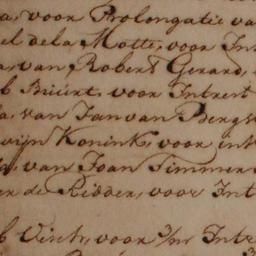 a, voor Prolongatie va
el dela Motte, voor Int
a, van, Robert Gerard,
b Buert, voor Intrest
a, van Jan van Bergs
wijn Konink, voor int
t, van Joan Timmer
er de Ridder, voor Int
voor 3/m Intr